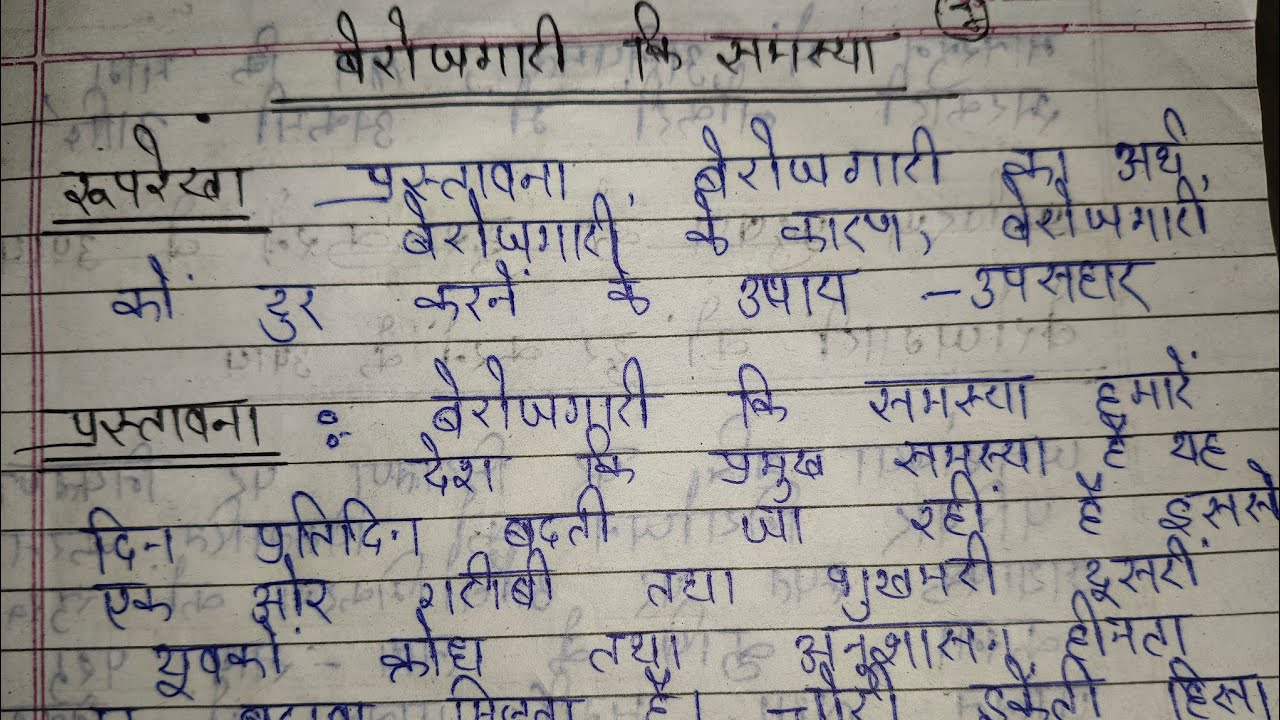 बेरोजगारी कि समस्या
रूपरेखा प्रस्तावना, बेरोजगारी का अर्थ,
बेरोजगारी के कारण, बेरोजगारी
कों दुर करनें के उपाय - उपसहार
प्रस्तावना : बेरोजगारी कि समस्या हमारें
देश कि प्रमुख समस्या है यह
दिन प्रतिदिन बढती जा रहीं है इससे
एक ओर गरीबी तथा भुखमरी दूसरीं
युवको क्रोध तथा अनुशासन हीनता
मिलता है। चोरी डकैती हिंसा